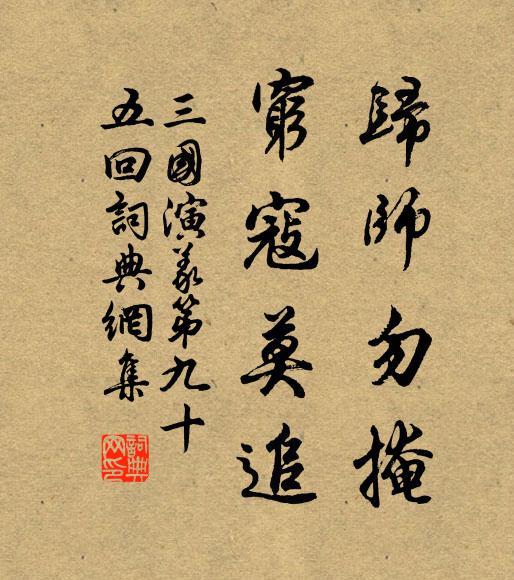 歸師勿掩
窮寇莫追
三國演義第九十
五回詞典網集
詞典
网印